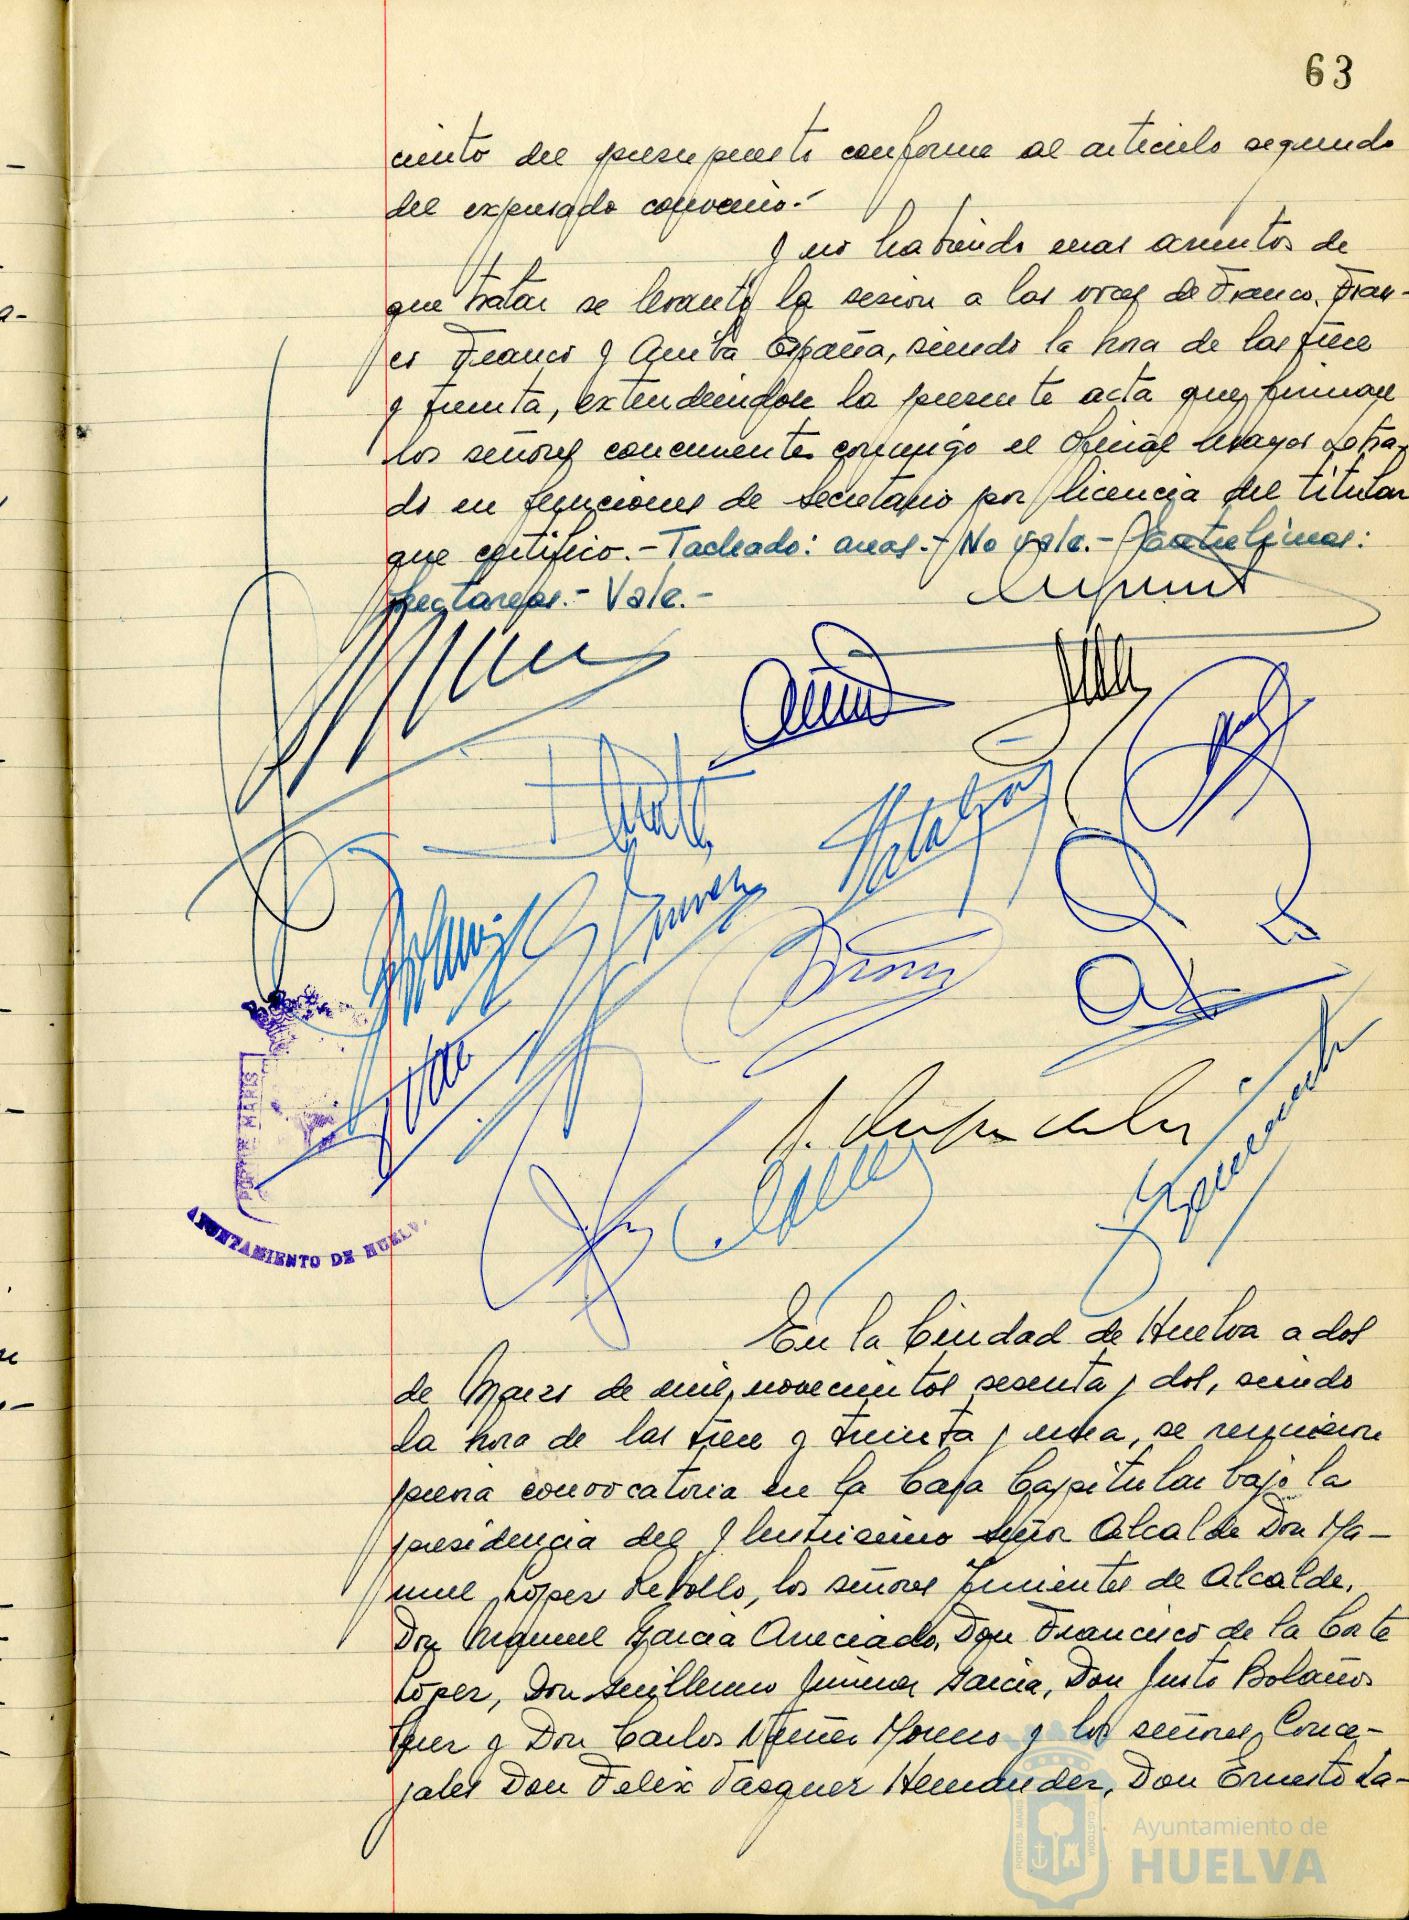 63
ciento del presupuesto conforme al articulo segundo
del expresado convenio.-
Y no habiendo mas asuntos de
que tratar se levantó la sesion a las voces de Franco, Fran-
co Franco y Arriba España, siendo la hora de las trece
y treinta, extendiendose la presente acta que firman
los señores concurrentes conmigo el Oficial Mayor Letra-
do en funciones de Secretario por licencia del titular
que certifico.- Tachado: areas.- No vale.- Entrelineas:
hectareas.- Vale.-
PORTUS MARIS
AYUNTAMIENTO DE HUELVA
En la Ciudad de Huelva a dos
de Marzo de mil novecientos sesenta y dos, siendo
la hora de las trece y treinta y una, se reunieron
previa convocatoria en la Casa Capitular bajo la
presidencia del Ilustrisimo Señor Alcalde Don Ma-
nuel Lopez Rebollo, los señores Tenientes de Alcalde,
Don Manuel Garcia Aneciado, Don Francisco de la Corte
Lopez, Don Guillermo Jimenez Garcia, Don Justo Bolaños
y Don Carlos Nuñez Moreno y los señores Conce-
jales Don Felix Vazquez Hernandez, Don Ernesto La-
PORTUS MARIS
CUSTODIA
Ayuntamiento de
HUELVA